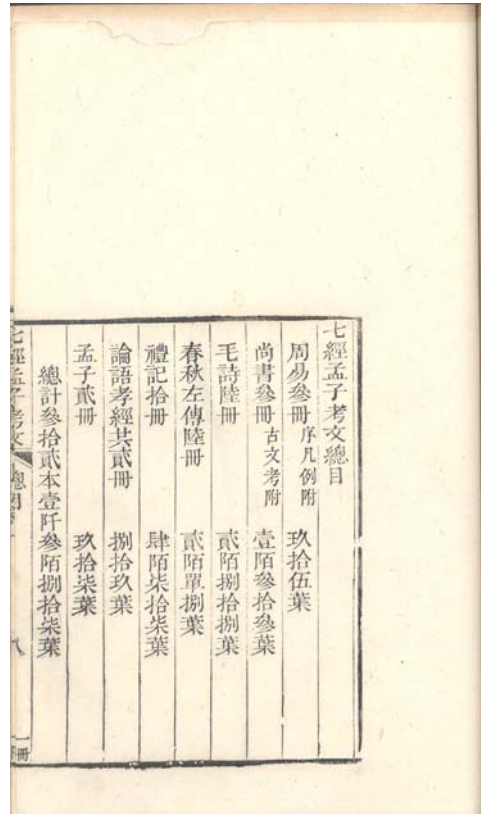 七經孟子考文總目
周易參冊序凡例附 玖拾伍葉
尚書參冊古文考附 壹陌參拾參葉
毛詩陸冊 貳陌捌拾捌葉
春秋左傳陸冊 貳陌單捌葉
禮記拾冊 肆陌柒拾柒葉
論語孝經共貳冊 捌拾玖葉
孟子貳冊 玖拾柒葉
總計參拾貳本壹阡參陌捌拾柒葉
七經孟子考文 總目 八 一冊